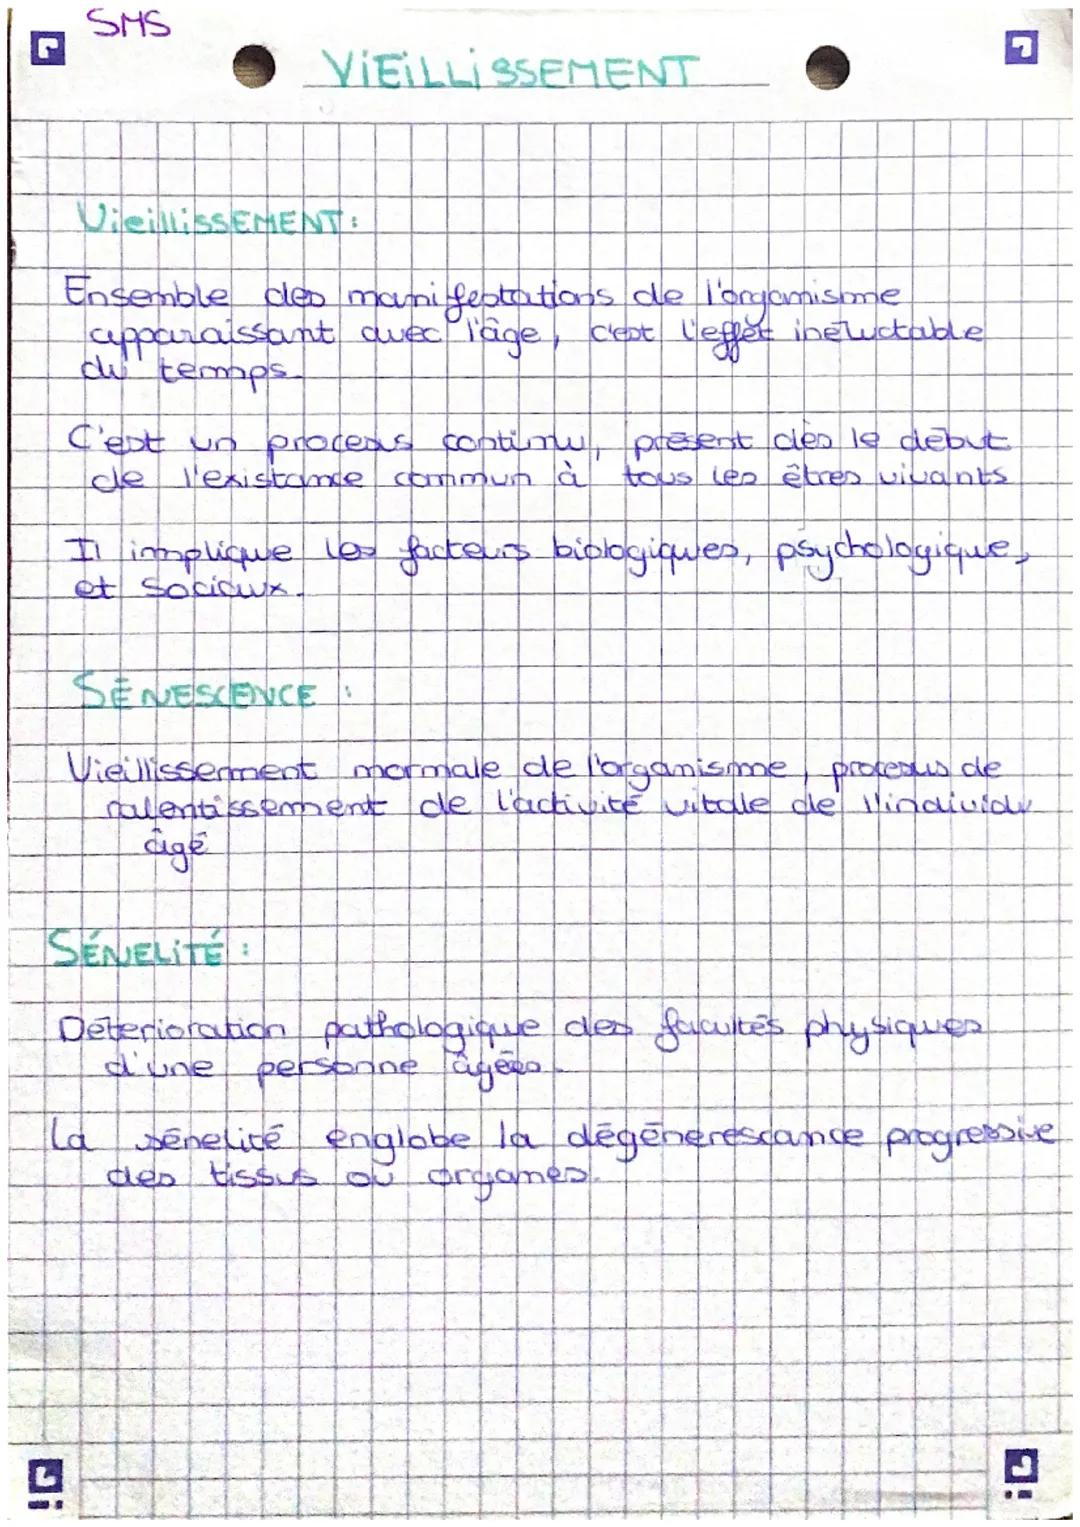 SMS
VIEILLISSEMENT
VieilliSSEMENT :
Ensemble des manifestations de l'organisme
apparaissant avec l'âge, c'est l'effet inéluctable
du temps.
C'est un procesus continu, présent dès le début
de l'existance commun à tous les êtres vivants
Il implique les facteurs biologiques, psychologique,
et sociaux.
SÉNESCENCE :
Vieillissement normale de l'organisme, procesus de
ralentissement de l'activité vitale de l'individu
âgé
SÉNELITÉ :
Déterioration pathologique des facultés physiques
d'une personne âgées.
La sénelité englobe la dégénerescance progressive
des tissus ou organes.